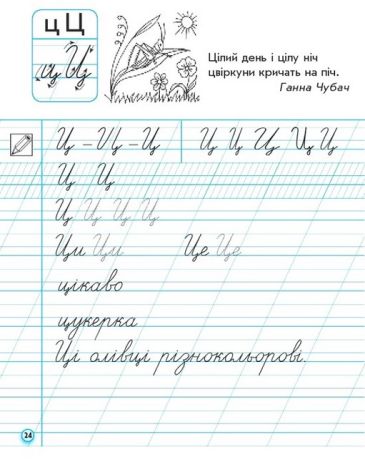 ц Ц
ц Ц
Цілий день і цілу ніч
цвіркуни кричать на піч.
Ганна Чубач
Ц – Ц – Ц Ц Ц Ц Ц Ц
Ц Ц
Ц Ц Ц Ц
Ци Ци Це Це
цікаво
цукерка
Ці олівці різнокольорові.
24